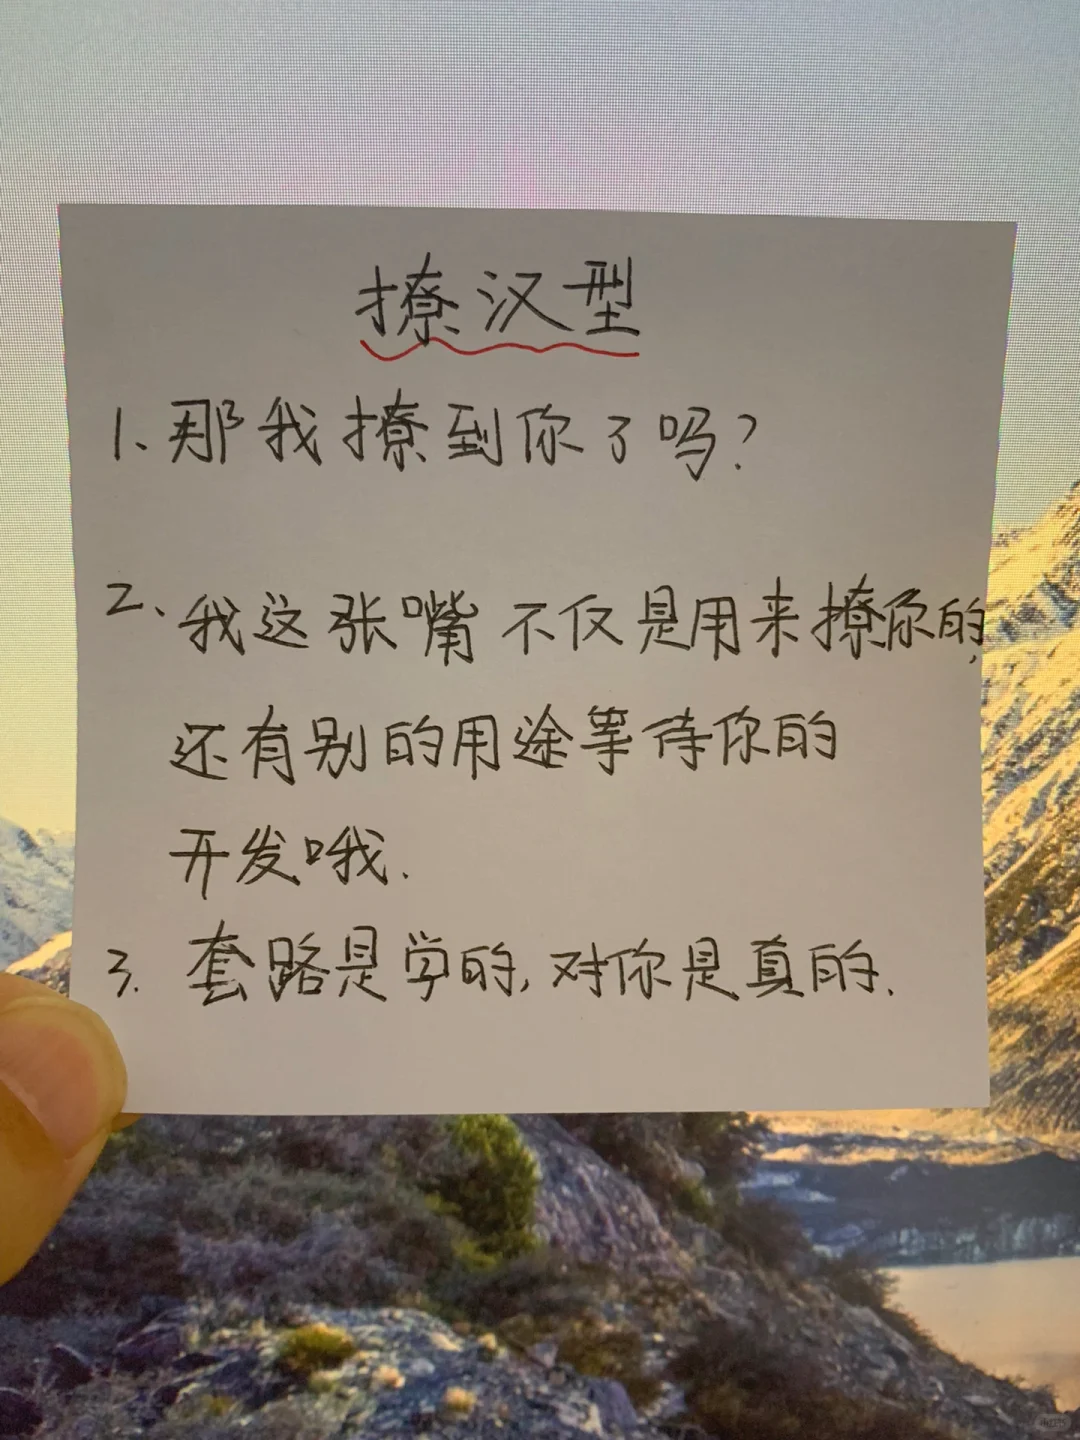 撩汉型
1、那我撩到你了吗?
2、我这张嘴不仅是用来撩你的,
还有别的用途等待你的
开发哦.
3. 套路是学的,对你是真的.